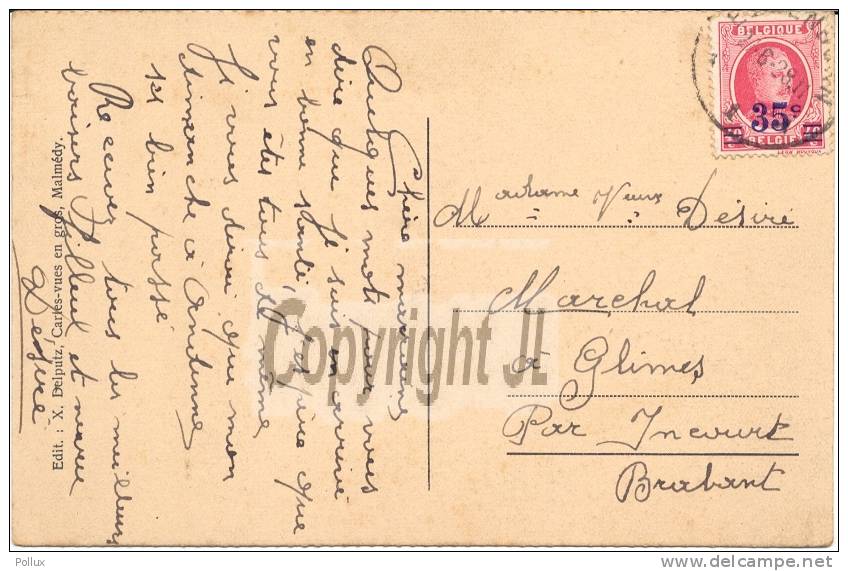 Chère marraine
Quelques mots pour vous
dire que je suis en arrivé
en bonne santé, j'espère que
vous êtes tous de même
Je vous dirai que mon
dimanche à Andenne
est bien passé
Recevez tous les meilleurs
baisers filleul et neveu
Désiré
Edit. : X. Delputz, Cartes-vues en gros, Malmédy.
BELGIQUE
35c
BELGIË
Madame Veuve Désiré
Marchal
à Glimes
Par Incourt
Brabant
Copyright JL
Pollux
delcampe.net